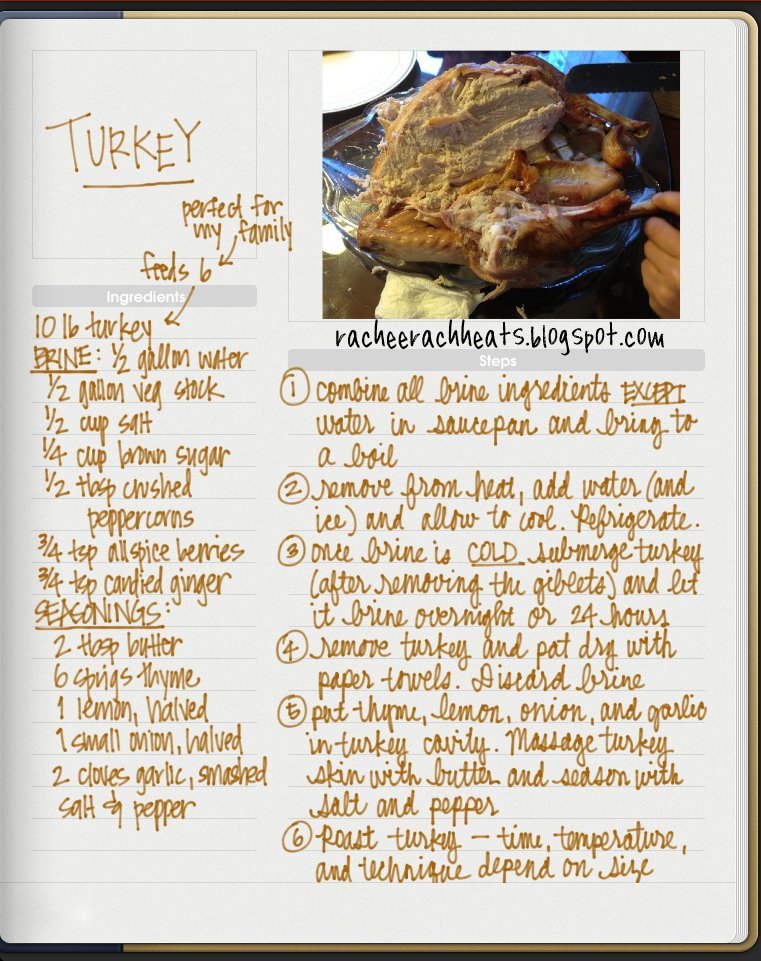 TURKEY
perfect for
my family
feeds 6
Ingredients
10 lb turkey
BRINE: ½ gallon water
½ gallon veg stock
½ cup salt
¼ cup brown sugar
½ tbsp crushed
peppercorns
¾ tsp allspice berries
¾ tsp candied ginger
SEASONINGS:
2 tbsp butter
6 sprigs thyme
1 lemon, halved
1 small onion, halved
2 cloves garlic, smashed
salt & pepper
racheerachheats.blogspot.com
Steps
① combine all brine ingredients EXCEPT
water in saucepan and bring to
a boil
② remove from heat, add water (and
ice) and allow to cool. Refrigerate.
③ once brine is COLD submerge turkey
(after removing the giblets) and let
it brine overnight or 24 hours
④ remove turkey and pat dry with
paper towels. Discard brine
⑤ put thyme, lemon, onion, and garlic
in turkey cavity. Massage turkey
skin with butter and season with
salt and pepper
⑥ Roast turkey – time, temperature,
and technique depend on size